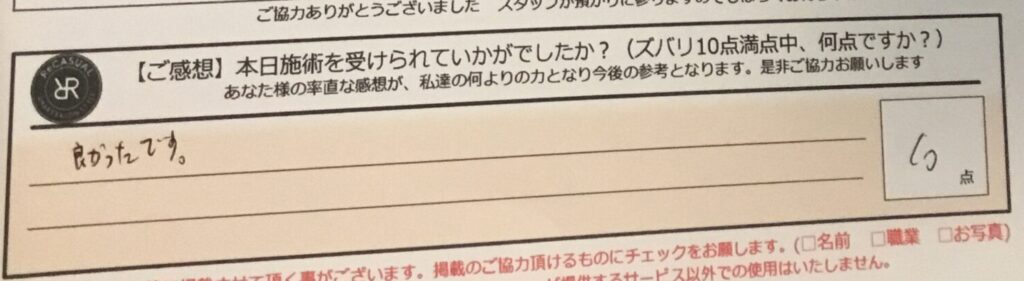 ご協力ありがとうございました
【ご感想】本日施術を受けられていかがでしたか？（ズバリ10点満点中、何点ですか？）
あなた様の率直な感想が、私達の何よりの力となり今後の参考となります。是非ご協力お願いします
RECASUAL
RR
良かったです。
10
点
頂く事がございます。掲載のご協力頂けるものにチェックをお願します。(□名前 □職業 □お写真)
提供するサービス以外での使用はいたしません。